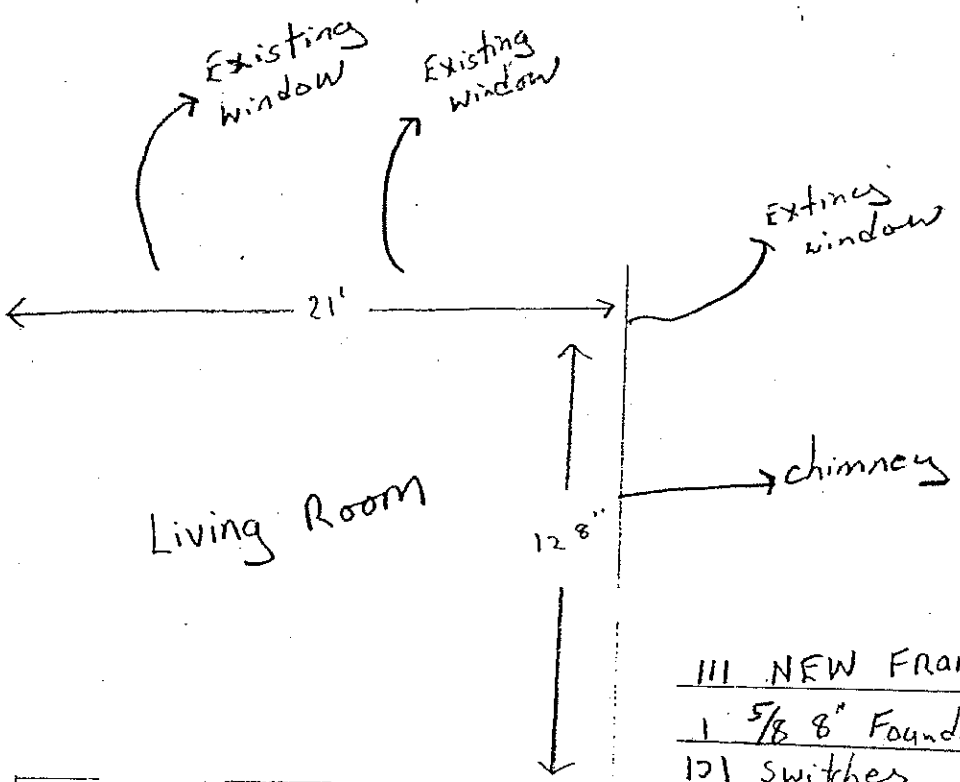 Existing
window
Existing
window
Extineg
window
21'
chimney
Living Room
12 8"
111 NEW FRAM
1 5/8 8" Found
121 switches